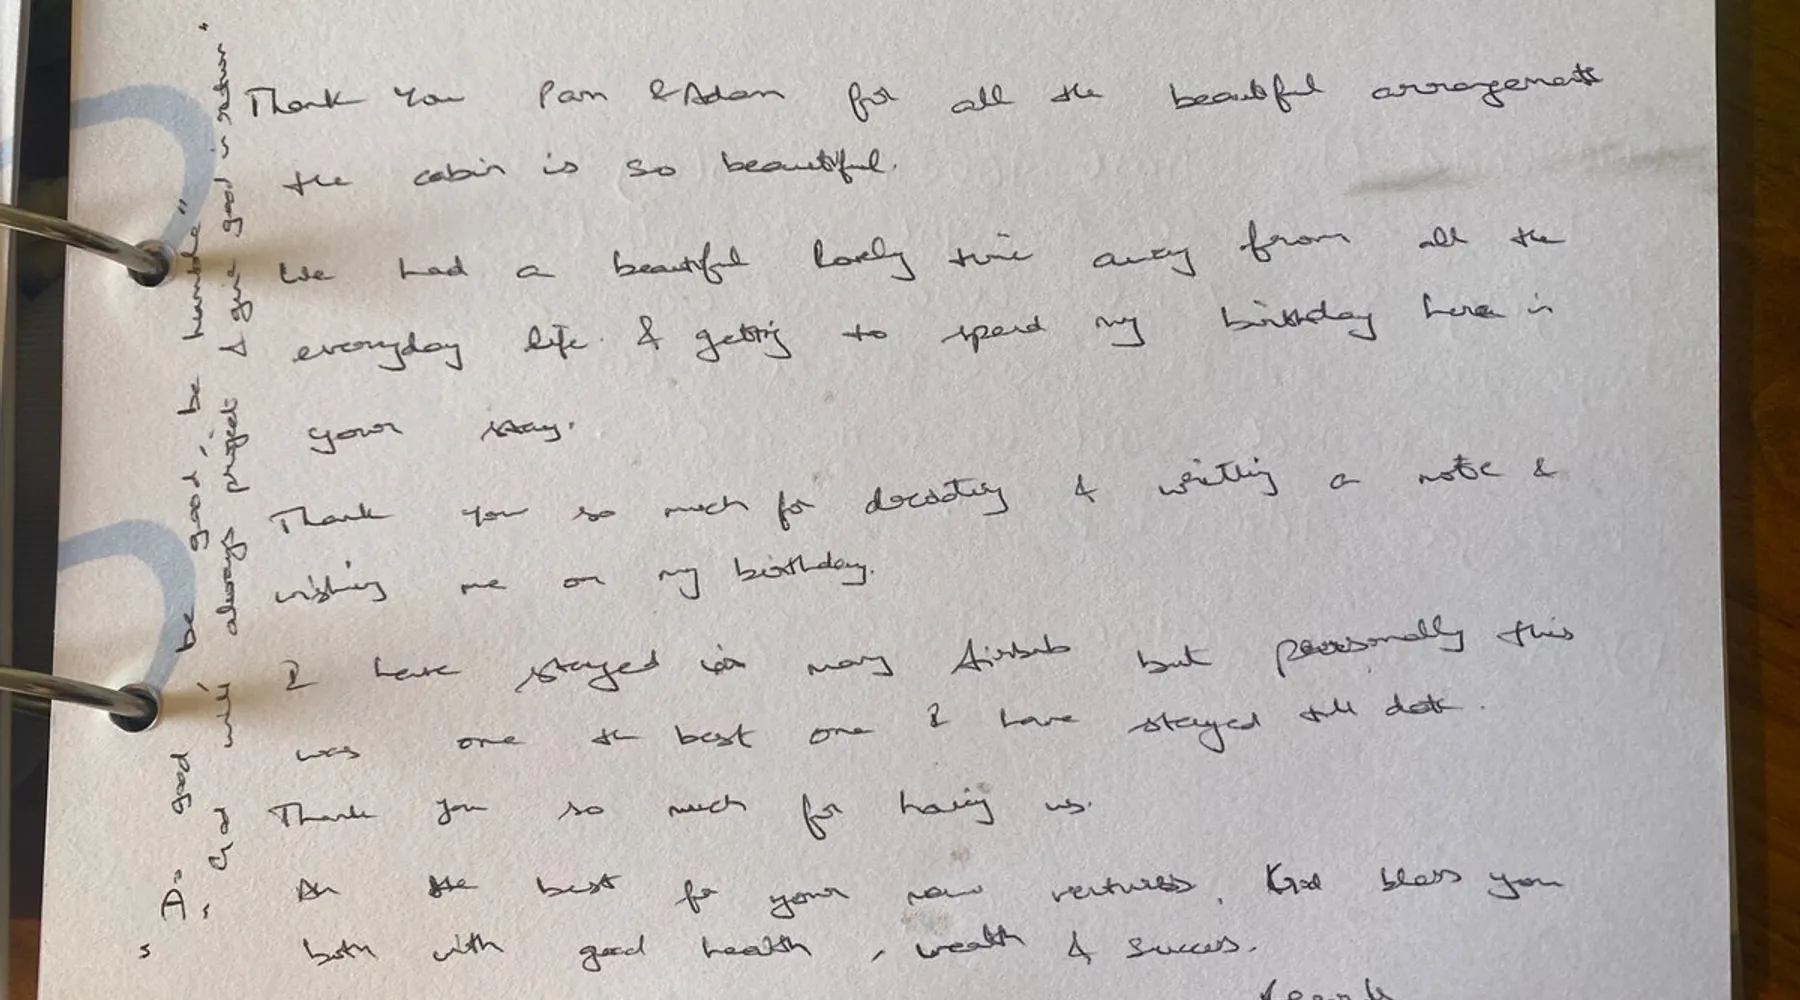 Thank You Pam & Adam for all the beautiful arrangements
the cabin is so beautiful.
We had a beautiful lovely time away from all the
everyday life & getting to spend my birthday here in
your stay.
Thank you so much for decorating & writting a note &
wishing me on my birthday.
I have stayed in many Airbnb but personally this
was one the best one I have stayed till date.
Thank you so much for having us.
All the best for your new ventures. God bless you
both with good health, wealth & success.
"Do good be good, be humble"
"God will always project & give good in return"